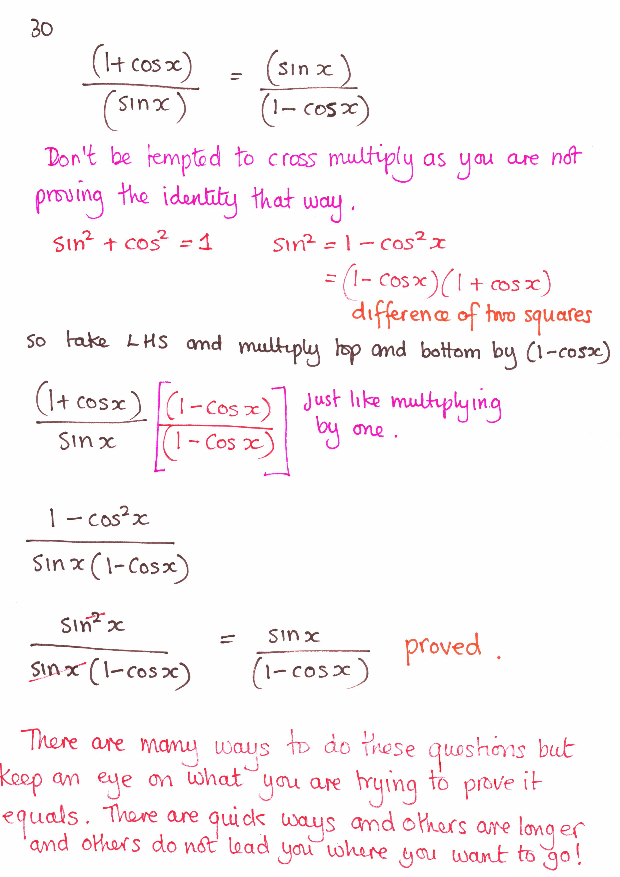 30
(1+ cos x) / (sin x) = (sin x) / (1- cos x)
Don't be tempted to cross multiply as you are not
proving the identity that way.
sin² + cos² = 1 sin² = 1 - cos² x
= (1- cos x)(1 + cos x)
difference of two squares
So take LHS and multiply top and bottom by (1-cosx)
(1+ cos x) / sin x [(1 - Cos x) / (1 - Cos x)] Just like multiplying
by one.
1 - cos² x / Sin x (1-Cosx)
sin² x / sin x (1-cos x) = sin x / (1- cos x) proved.
There are many ways to do these questions but
keep an eye on what you are trying to prove it
equals. There are quick ways and others are longer
and others do not lead you where you want to go!